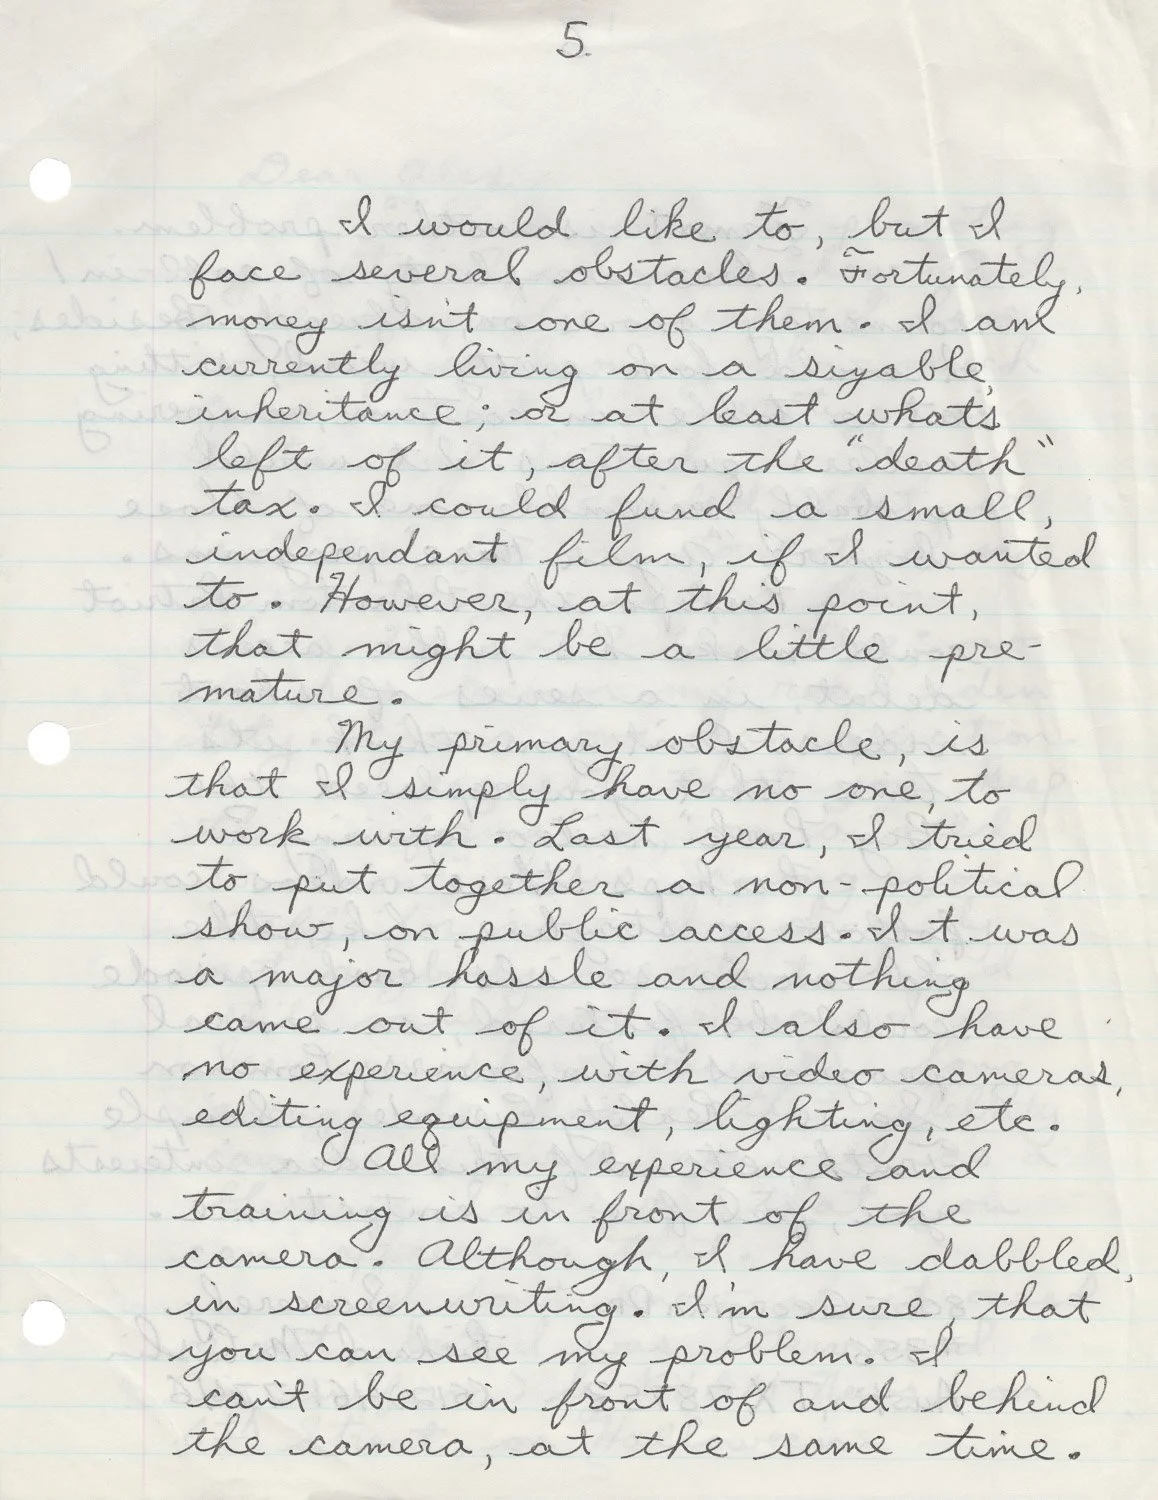 5.
I would like to, but I
face several obstacles. Fortunately,
money isn't one of them. I am
currently living on a sizable,
inheritance; or at least what's
left of it, after the "death"
tax. I could fund a small,
independant film, if I wanted
to. However, at this point,
that might be a little pre-
mature.
My primary obstacle, is
that I simply have no one, to
work with. Last year, I tried
to put together a non-political
show, on public access. It was
a major hassle and nothing
came out of it. I also have
no experience, with video cameras,
editing equipment, lighting, etc.
All my experience and
training is in front of the
camera. Although, I have dabbled,
in screenwriting. I'm sure, that
you can see my problem. I
can't be in front of and behind
the camera, at the same time.